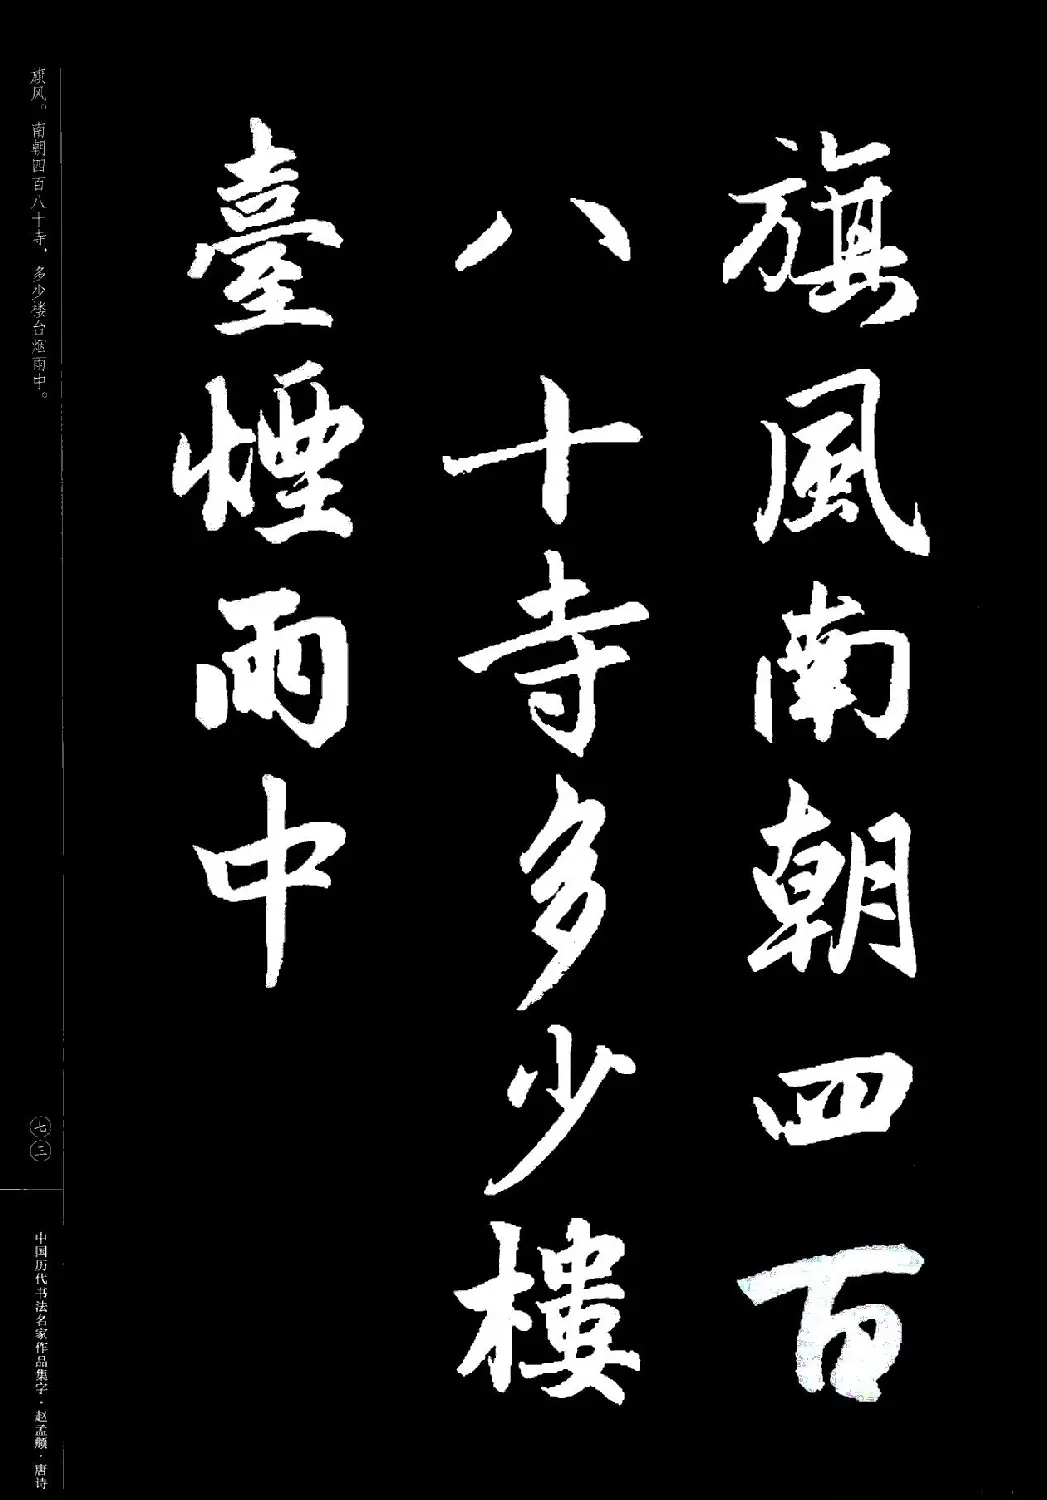 旗風南朝四百
八十寺多少樓
臺煙雨中
旗风。南朝四百八十寺，多少楼台烟雨中。
七三
中国历代书法名家作品集字·赵孟頫·唐诗